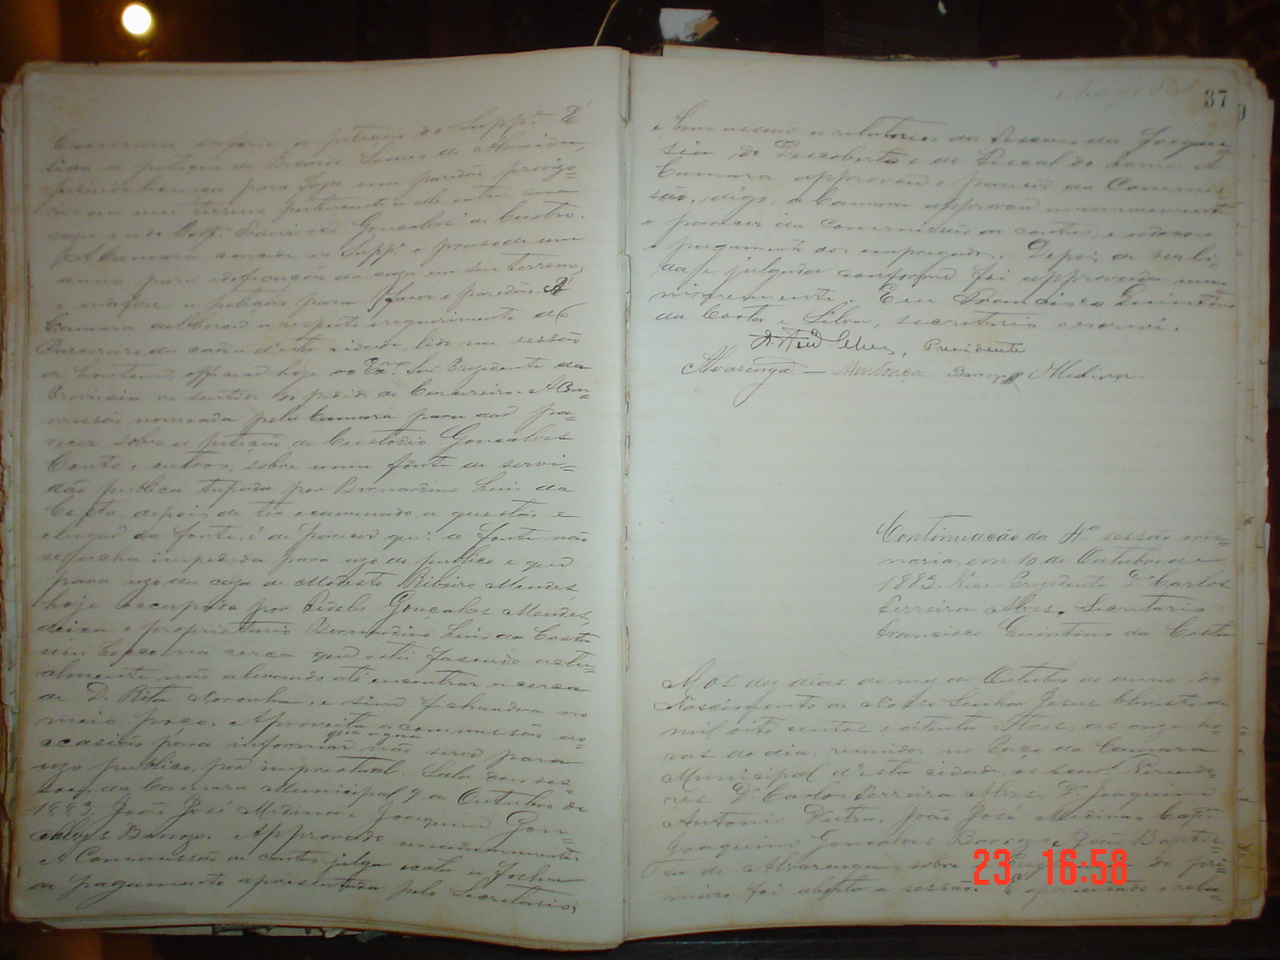 Camara defira a petição do Suppe. É
lida a petição de Ricardo Soares de Almeida,
pedindo licença para fazer um paredão proviso=
rio em um terreno pertencente a elle, entre sua
casa e a do Capm. Francisco Gonçalves de Castro.
A Camara concede ao Suppe o praso de um
anno para edificação da casa em seu terreno,
e indefere a petição para fazer o paredão. A
Camara deliberou a respeito requerimento do
Carcereiro da cadea d'esta cidade, lido na sessão
de hontem, officiar hoje ao Exmo. Snr. Prezidente da
Provincia no sentido do pedido do Carcereiro. A Com=
missão nomeada pela Camara para dar pa=
recer sobre a petição de Custodio Gonçalves
Couto e outros, sobre uma fonte de servi=
dão publica tapada por Bernardino Luis da
Costa, depois de ter examinado a questão e
o lugar da fonte, é de parecer que: a fonte não
seja impedida para uzo do publico e que
para uzo da caza de Modesto Ribeiro Mendes,
hoje occupada por Fidelis Gonçalves Mendes,
deixe o proprietario Bernardino Luis da Costa
um beco na cerca que está fazendo actu=
almente não a levando até encontrar a cerca
de D. Rita Noronha, e sim fechando-a no
meio poço. Aproveita a commissão a o=
casião para informar que a agua não serve para
uzo publico, por imprestavel. Sala das ses=
soens da Camara Municipal, 9 de Outubro de
1883. João José Medina e Joaquim Gon=
çalves Barroza. Approvado unanimemente.
A Commissão de contas, julga exacta a folha
de pagamento apresentada pelo Secretario,
37
e bem assim os relatorios da Fregue=
sia do Descoberto e do Fiscal do ramo. A
Camara approvou o parecer da Commis=
são, digo, a Camara approvou unanimemente
o parecer da Commissão de contas, e ordenou
o pagamento dos empregados. Depois de ser li=
da e julgada conforme foi approvada una=
nimemente. Eu Francisco Quintino
da Costa e Silva, secretario escrevi.
Presidente
Alvarenga — Mendonça Barroza Medina.
Continuação da 4a sessão ordi=
naria, em 10 de Outubro de
1883. Vice-Prezidente Dr. Carlos
Ferreira Alves, Secretario
Francisco Quintino da Costa
Aos dez dias do mez de Outubro do anno do
Nascimento de Nosso Senhor Jesus Christo de
mil oito centos e oitenta e tres, as onze ho=
ras do dia, reunidos no Paço da Camara
Municipal d'esta cidade, os Senrs. Vereado=
res Dr. Carlos Ferreira Alves, Dr. Joaquim
Antonio Dutra, João José Medina, Capm.
Joaquim Gonçalves Barroza e João Baptis=
ta de Alvarenga, sobre a Prezidencia do pri=
meiro foi aberta a sessão. É apresentado o rela=
23 16:58